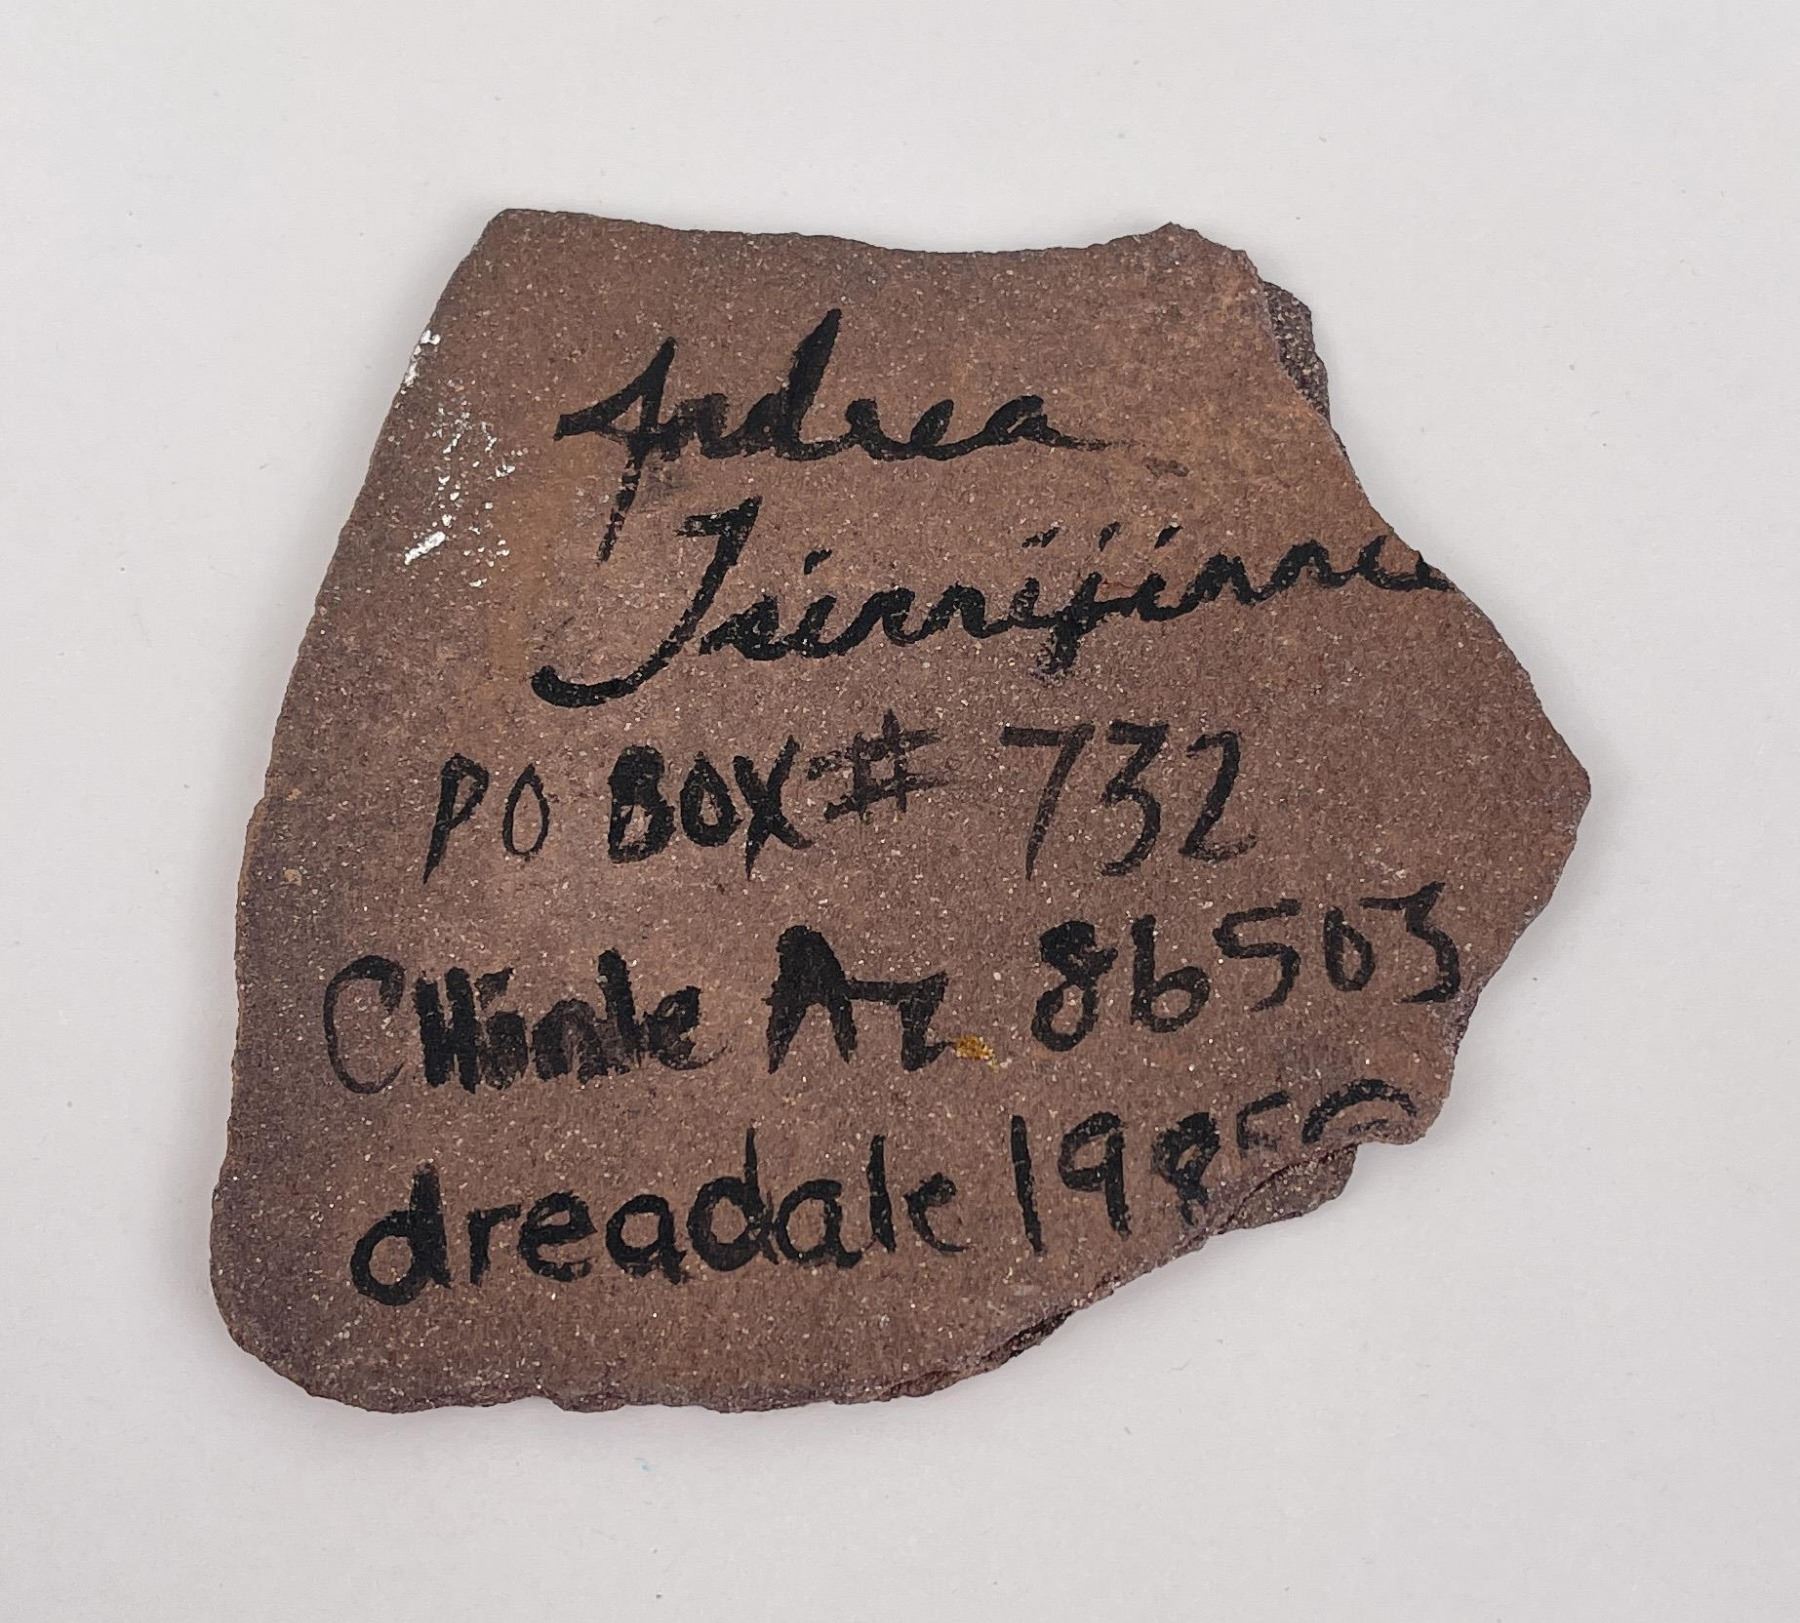 Andrea
Tsinnijinnie
PO BOX # 732
CHinle Az 86503
dreadale